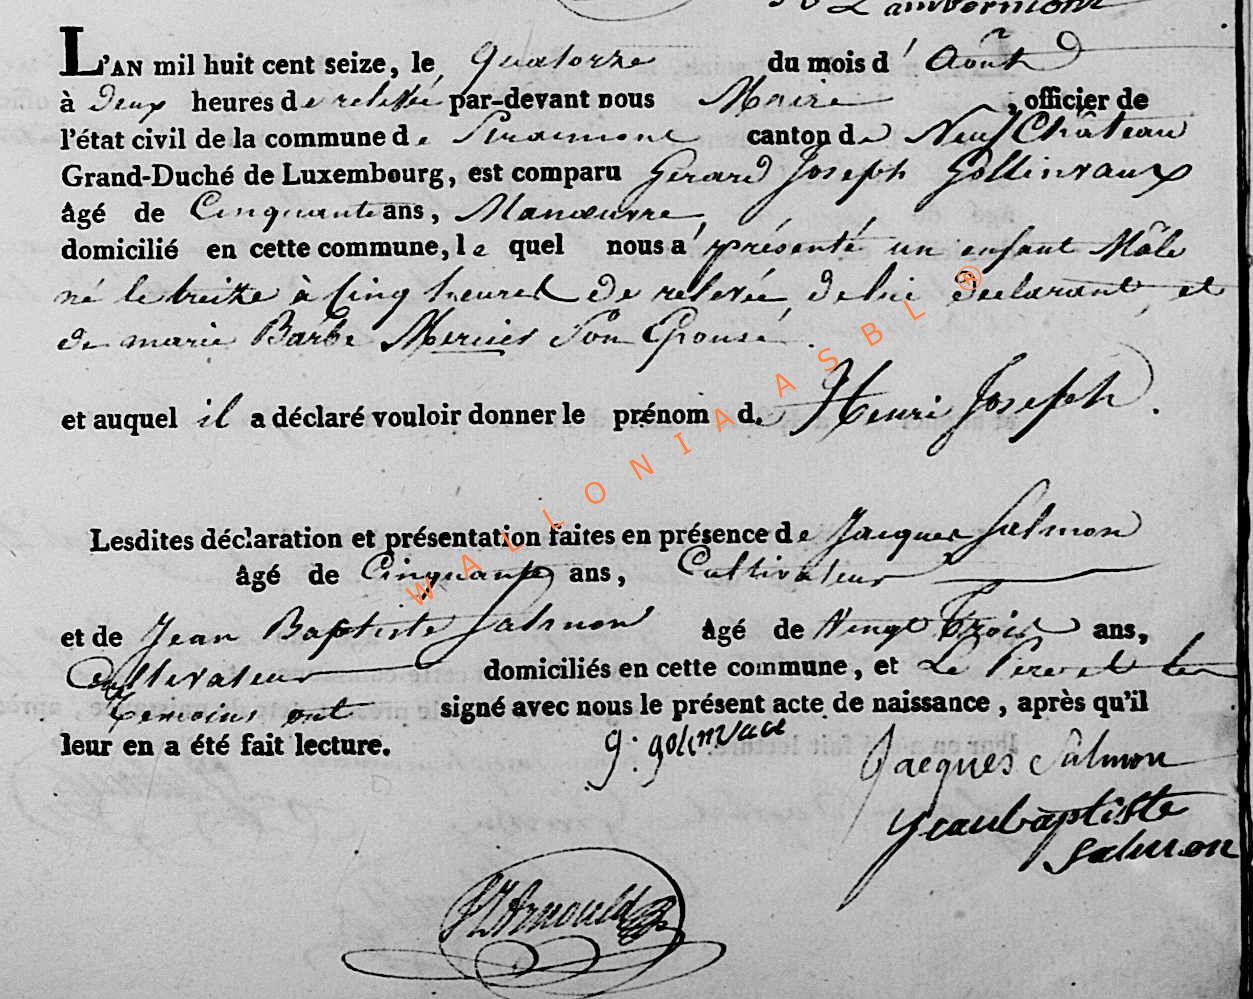 Lambermont
L'AN mil huit cent seize, le quatorze du mois d'Août
à Deux heures de relevée par-devant nous Maire, officier de
l'état civil de la commune de Straimont canton de NeufChâteau
Grand-Duché de Luxembourg, est comparu Gerard Joseph Gollinvaux
âgé de Cinquante ans, Manœuvre,
domicilié en cette commune, le quel nous a présenté un enfant Mâle
né le treize à Cinq heures de relevée de lui declarant, et
de marie Barbe Mercier Son Epouse.
et auquel il a déclaré vouloir donner le prénom de Henri Joseph.
Lesdites déclaration et présentation faites en présence de Jacques Salmon
âgé de Cinquante ans, Cultivateur
et de Jean Baptiste Salmon âgé de Vingt Trois ans,
Cultivateur domiciliés en cette commune, et Le Pere et les
temoins ont signé avec nous le présent acte de naissance, après qu'il
leur en a été fait lecture.
g: golinvaux
Jacques Salmon
jeanbaptiste
salmon
Arnould
WALLONIA ASBL ®